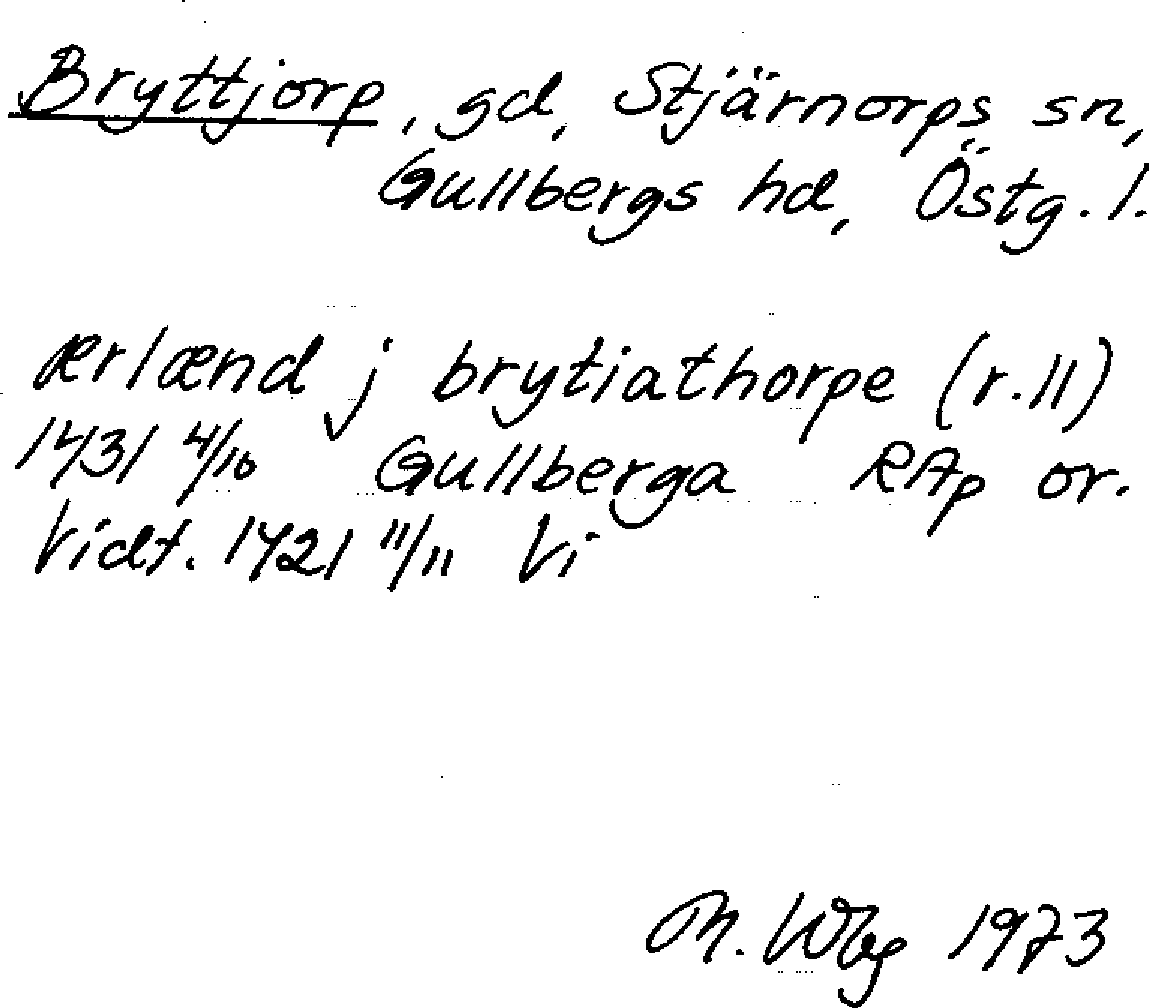 Bryttjorp, gd, Stjärnorps sn,
Gullbergs hd, Östg. l.
ærlænd j brytiathorpe (r. 11)
1431 4/10 Gullberga RAp or.
Vidt. 1421 11/11 Vi
M. Wbg 1973